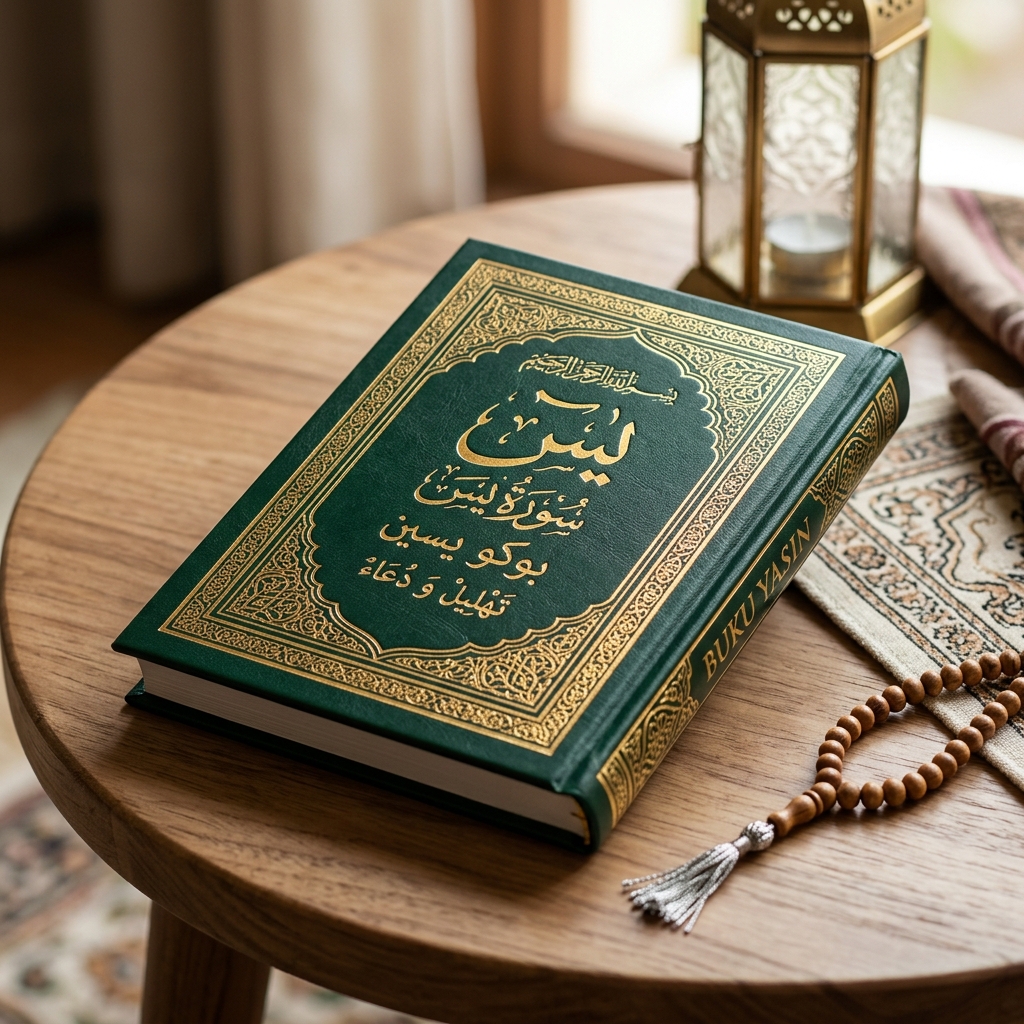 بسم الله الرحمن الرحيم
يس
سُورَةُ يسَ
بوكو يسين
تَهْلِيْل وَ دُعَاءْ
BUKU YASIN